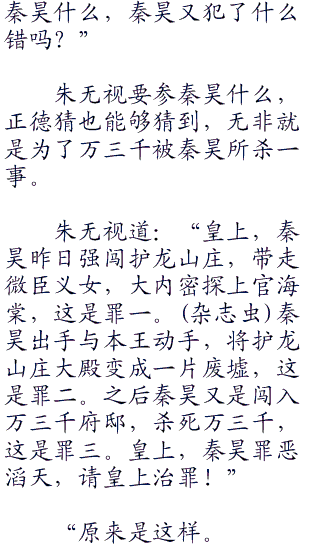 秦昊什么，秦昊又犯了什么
错吗？”
朱无视要参秦昊什么，
正德猜也能够猜到，无非就
是为了万三千被秦昊所杀一
事。
朱无视道：“皇上，秦
昊昨日强闯护龙山庄，带走
微臣义女，大内密探上官海
棠，这是罪一。(杂志虫)秦
昊出手与本王动手，将护龙
山庄大殿变成一片废墟，这
是罪二。之后秦昊又是闯入
万三千府邸，杀死万三千，
这是罪三。皇上，秦昊罪恶
滔天，请皇上治罪！”
“原来是这样。